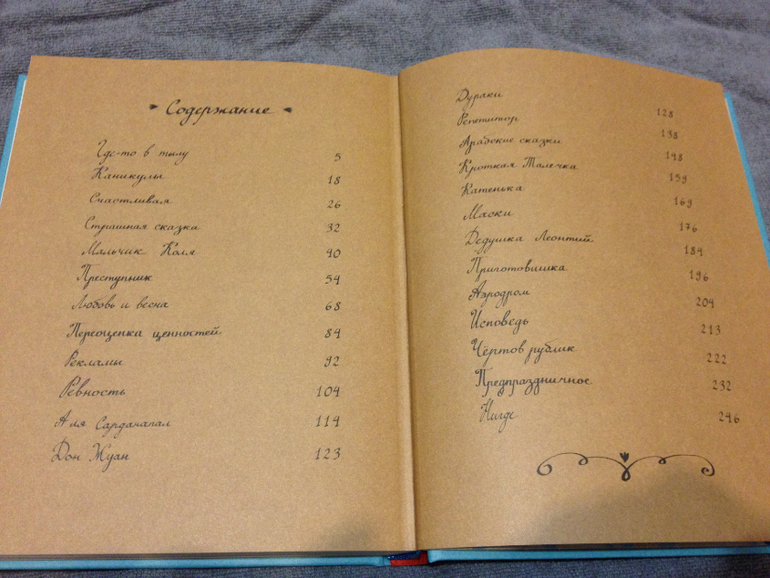 Содержание
Где-то в тылу 5
Каникулы 18
Счастливая 26
Страшная сказка 32
Мальчик Коля 40
Преступник 54
Любовь и весна 68
Переоценка ценностей 84
Рекламы 92
Ревность 104
А ля Сарданапал 114
Дон Жуан 123
Дураки 128
Репетитор 138
Арабские сказки 148
Кроткая Талечка 159
Катенька 169
Маски 176
Дедушка Леонтий 184
Приготовишка 196
Аэродром 204
Исповедь 213
Чёртов рублик 222
Предпраздничное 232
Нигде 246